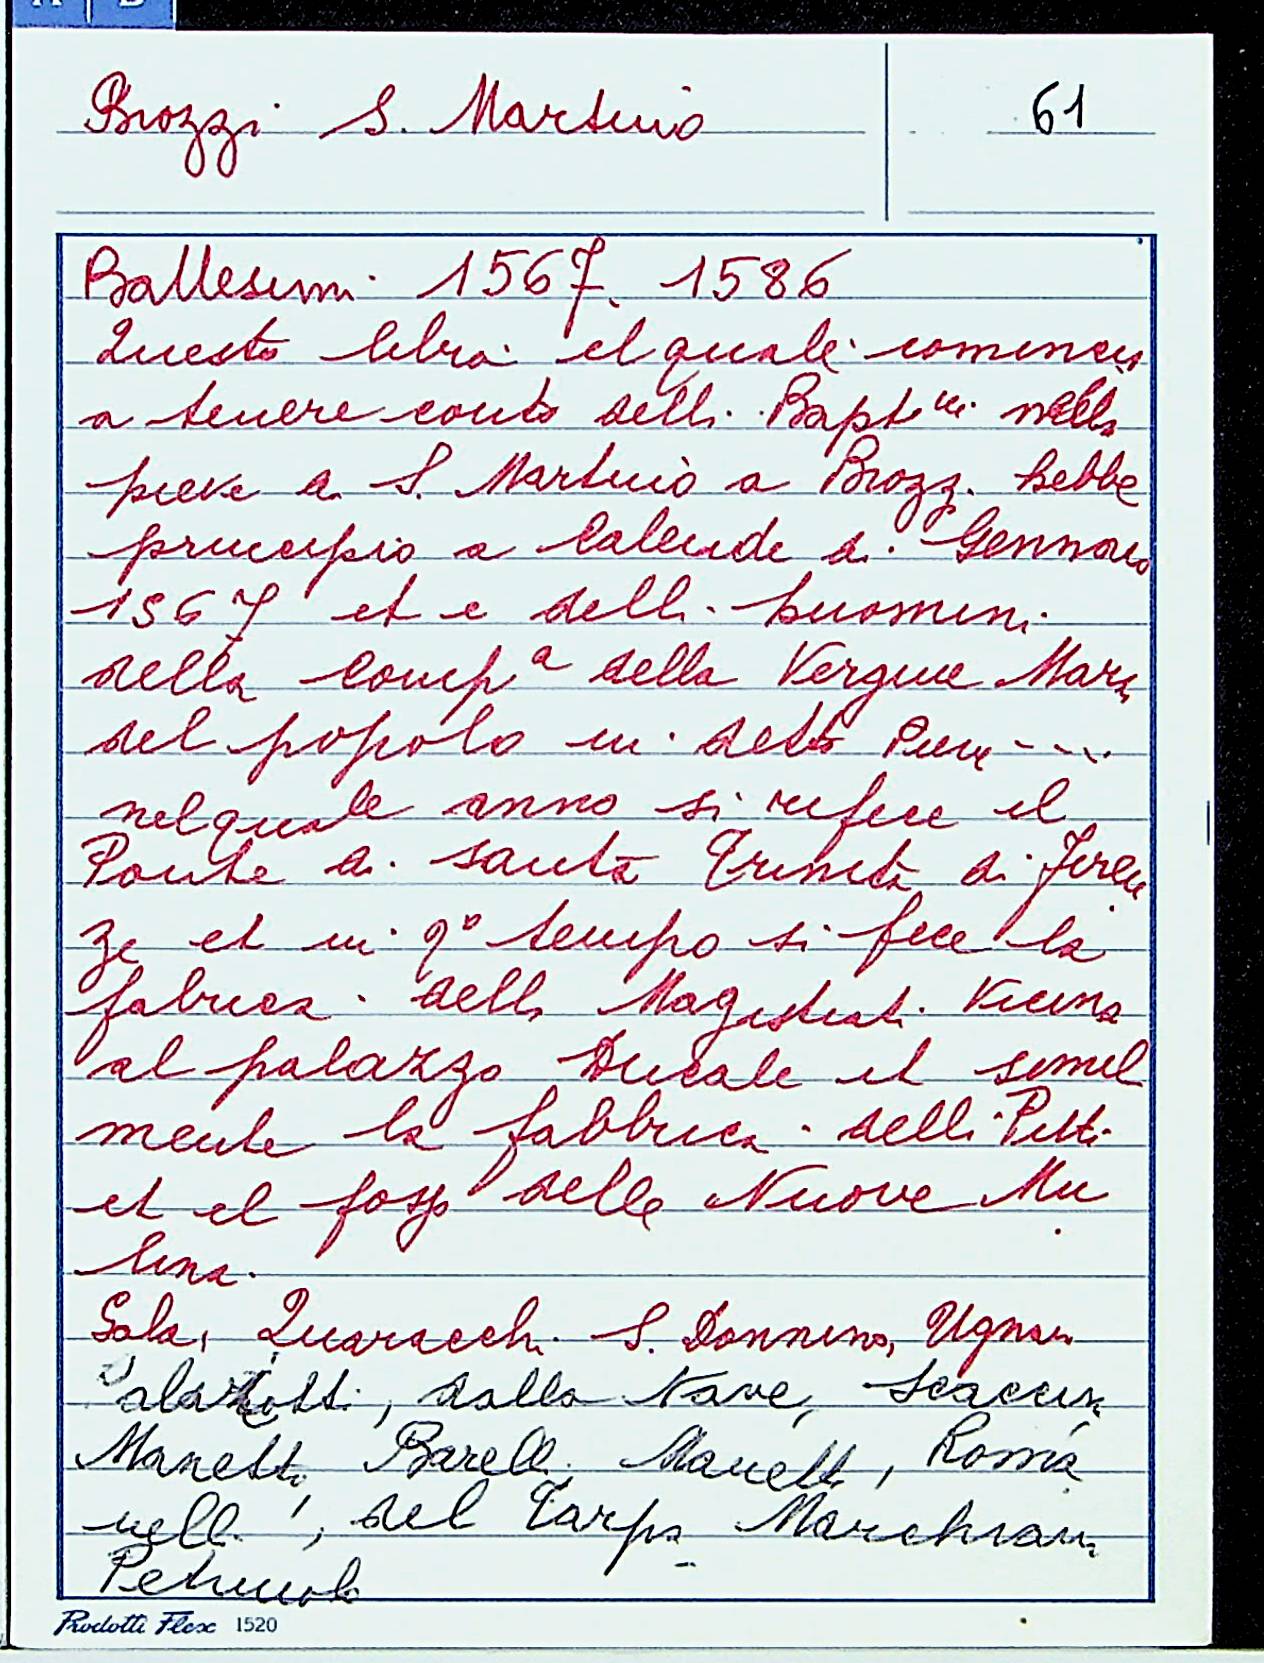 A B
Brozzi S. Martino 61
Battesimi 1567. 1586
Questo libro el quale comincia
a tenere conto delli Bapt.mi nella
pieve a S. Martino a Brozzi hebbe
principio a Calende di Gennaio
1567 et e delli huomini
della Comp.a della Vergine Maria
del popolo in detta Pieve ----
nel quale anno si rifece il
Ponte di santa Trinita di Firen
ze et in q.o tempo si fece la
fabrica delli Magistrati Vicino
al palazzo Ducale et simil
mente la fabbrica delli Pitti
et el fosso delle Nuove Mu
lina.
Sala, Quaracchi S. Donnino, Ugnano
dalla Nave,
Manetti, Barelli, Manetti, Roma
nelli, del Tarpa Marchiani
Prodotti Flex 1520